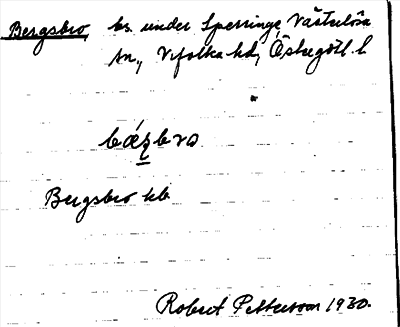 Bergsbro, bs. under Sperringe, Västerlösa
sn., Vifolka hd, Östergötl. l
bǽrbro
Bergsbro hb
Robert Petterson 1930.